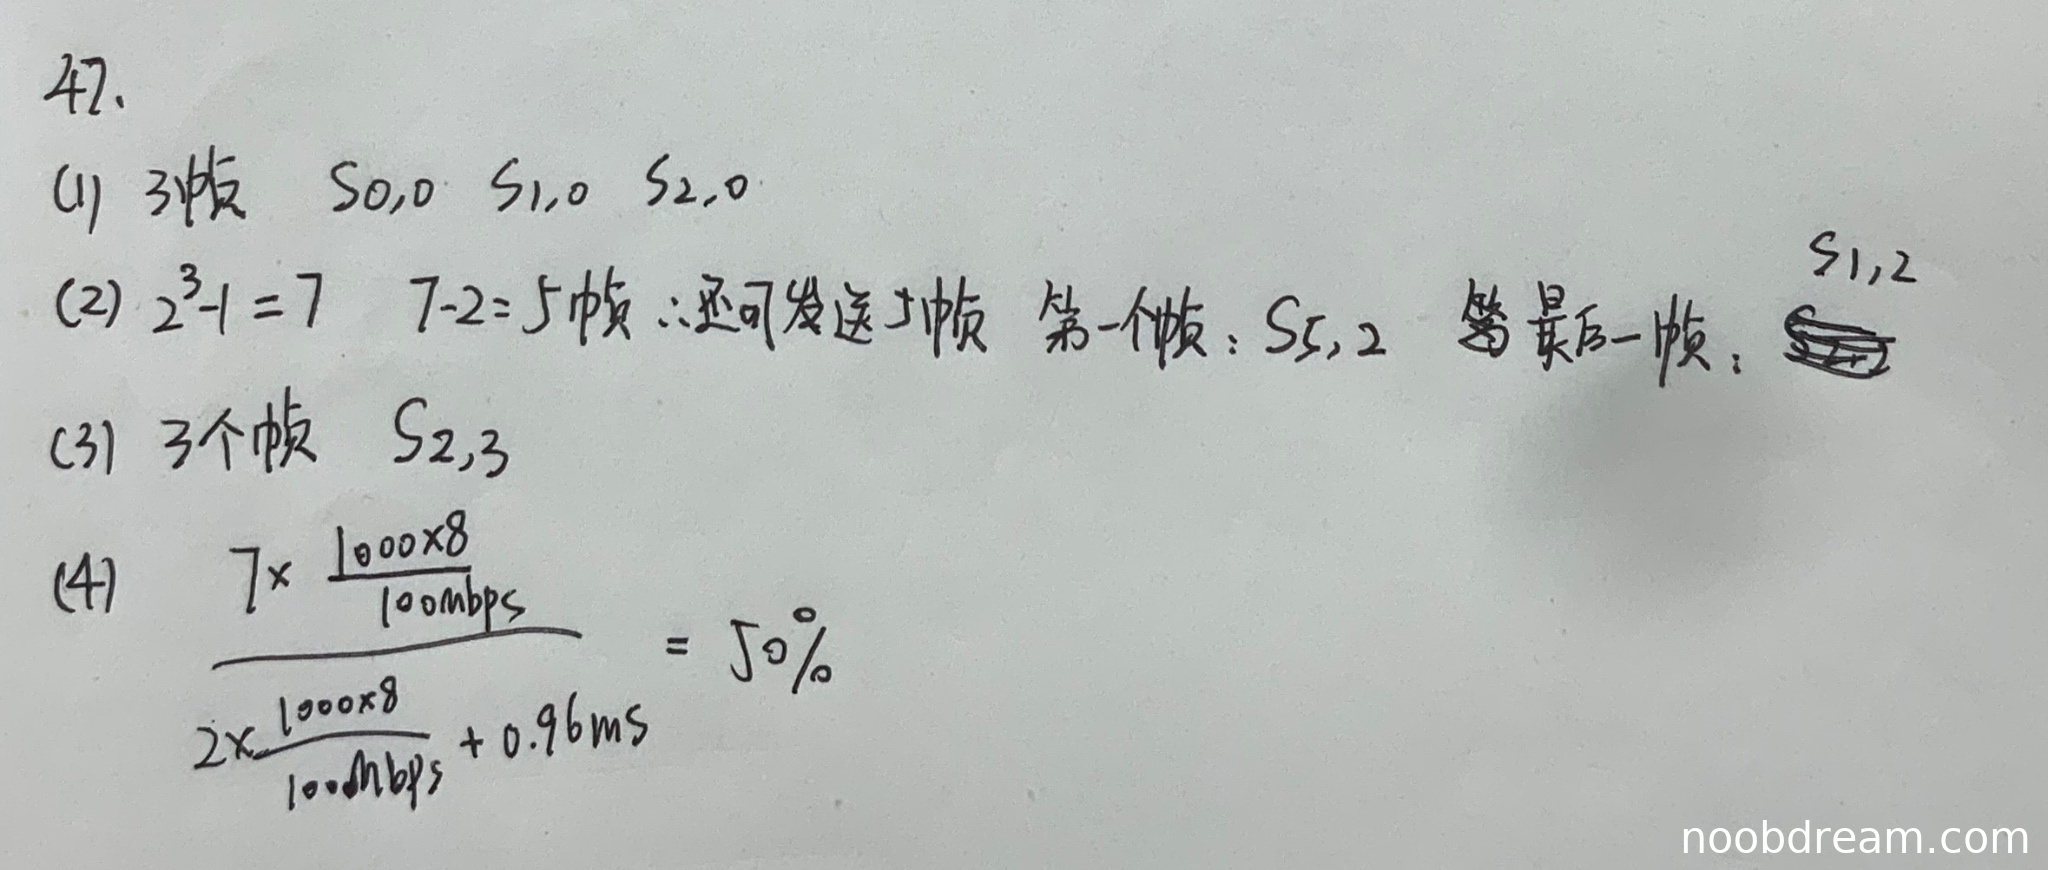 47.
(1) 3帧 S0,0 S1,0 S2,0
(2) 2³-1=7 7-2=5帧 ∴还可发送5帧 第一个帧：S5,2 最后一帧：S1,2
(3) 3个帧 S2,3
(4) 7× 1000×8
100Mbps
= 50%
2× 1000×8 + 0.96ms
100Mbps
noobdream.com